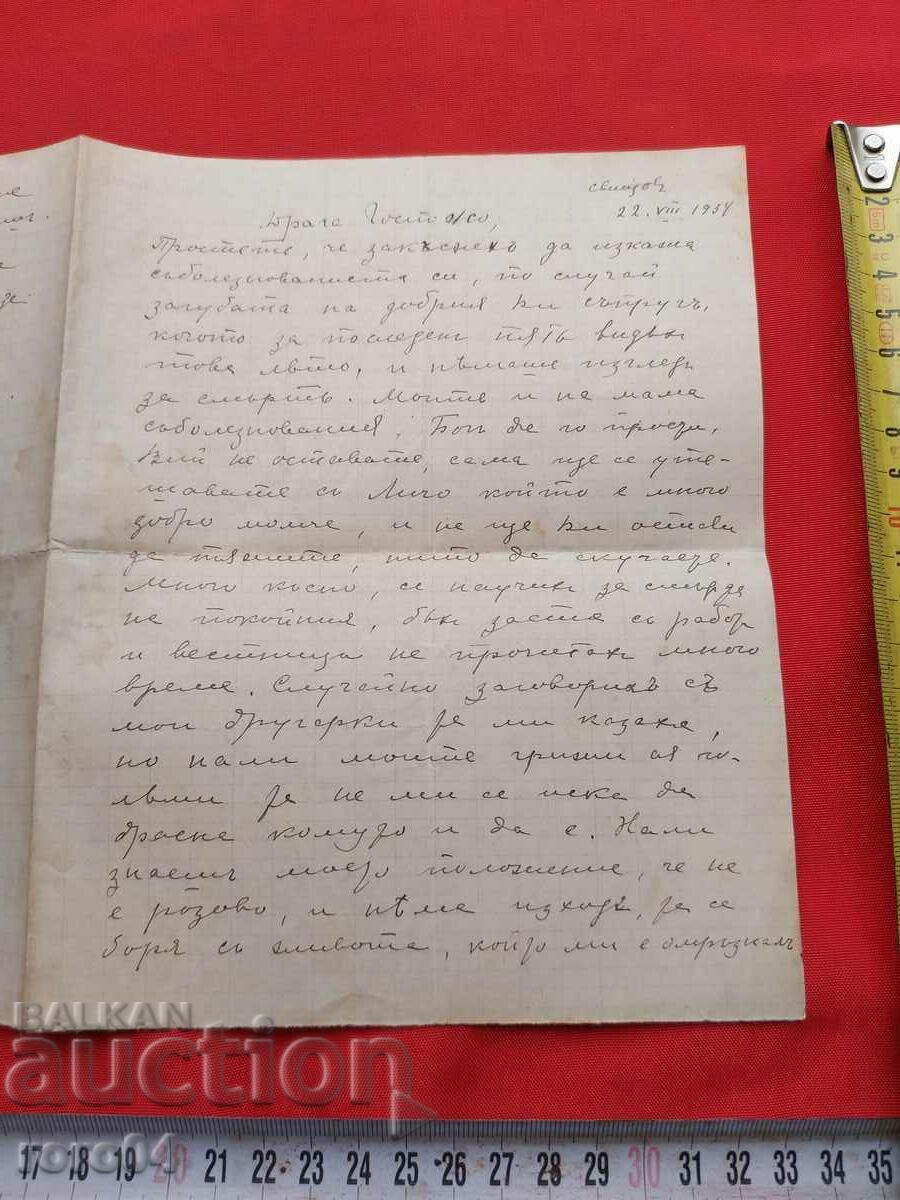 Свищовъ
22. VIII 1934
Драга Госпожо,
Простете, че закъснехъ да изкажа
съболезнованията си, по случай
загубата на добрия Ви съпругъ,
когото за последен пять видях
това лѣто, и нѣмаше изгледи
за смърть. Моите и на мама
съболезнования. Богъ да го прости,
Вий не оставате сама ще се уте-
шавате съ Личо който е много
добро момче, и не ще Ви остави
да тяжите, нито да скучаете.
Много късно, се научих за смъртта
на покойния, бях заета съ работ
и вестници не прочитах много
време. Случайно заговорихъ съ
мои другарки та ми казаха,
но нали моите грижи ся го-
лѣми та не ми се иска да
драсна комуто и да е. Нали
знаешъ моето положение, че не
е розово, и нѣма изходъ, та се
боря съ живота, който ми е омръзналъ
BALKAN
auction
1 2 3 4 5 6 7 8 9 10
17 18 19 20 21 22 23 24 25 26 27 28 29 30 31 32 33 34 35